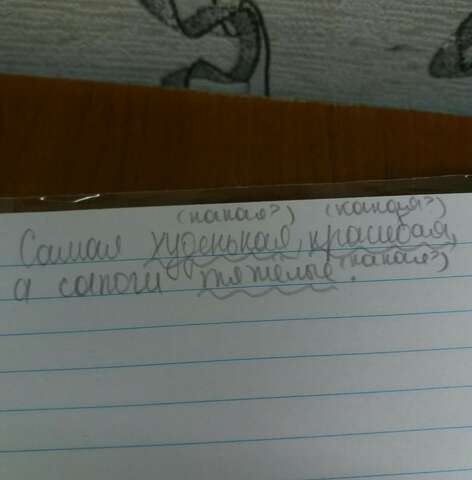 (какая?) (какая?)
Самая худенькая, красивая,
а сапоги тяжелые (какая?).